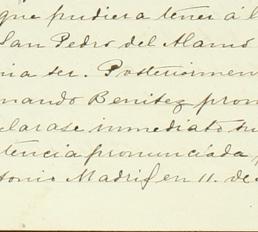 que pudiera tener á l
San Pedro del Alamo
nia ser. Posteriormen
nando Benitez pron
clarase inmediato su
tencia pronunciada,
tonio Madrid en 11. de